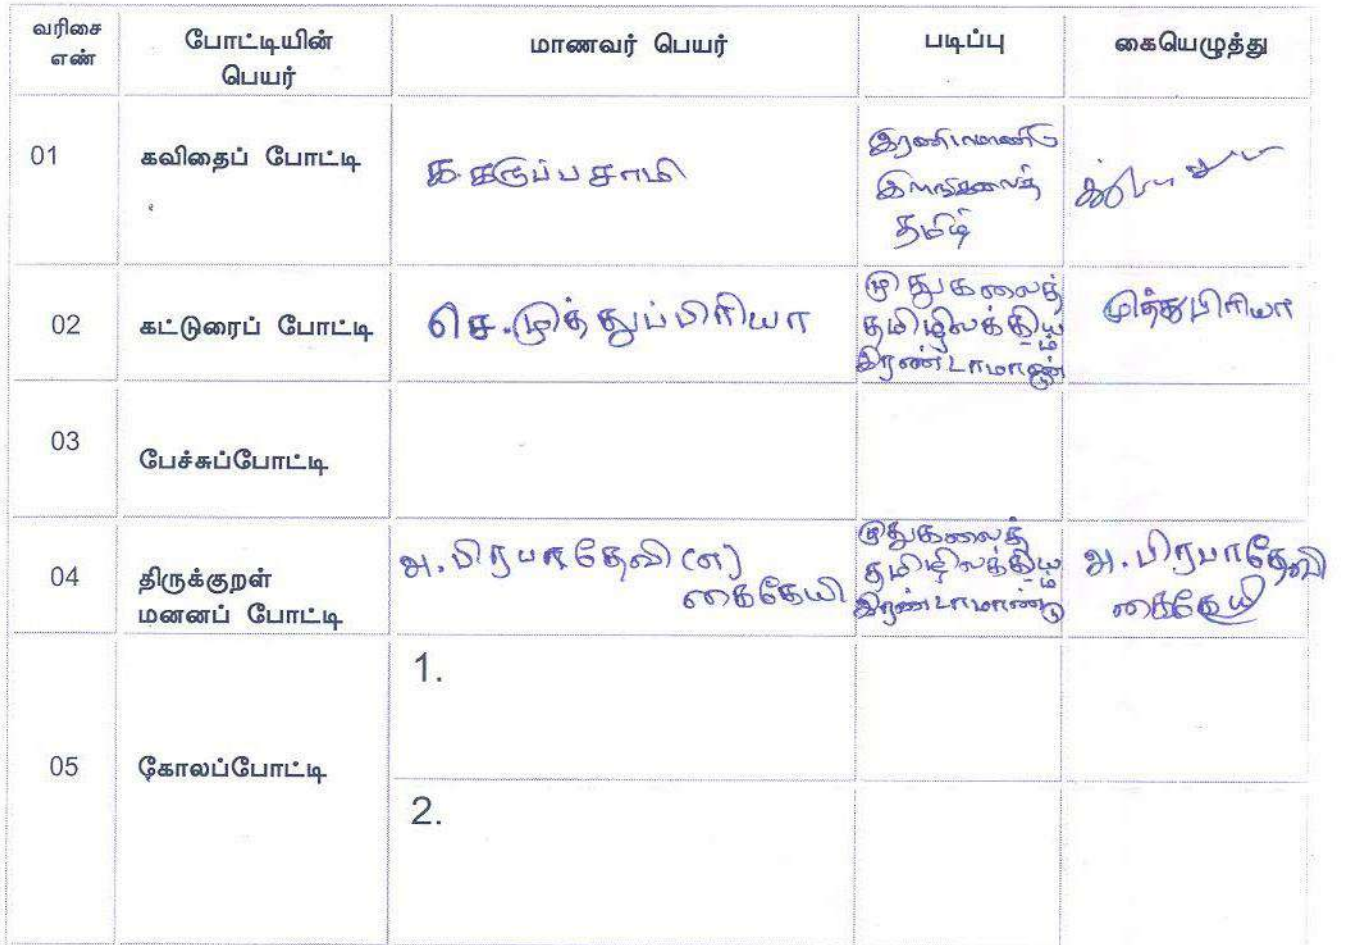 வரிசை எண்
போட்டியின் பெயர்
மாணவர் பெயர்
படிப்பு
கையெழுத்து
01
கவிதைப் போட்டி
க. கருப்பசாமி
இளங்கலைத்
தமிழ்
02
கட்டுரைப் போட்டி
செ. முத்துப்பிரியா
முதுகலைத்
தமிழிலக்கியம்
இரண்டாமாண்டு
முத்துபிரியா
03
பேச்சுப்போட்டி
04
திருக்குறள்
மனனப் போட்டி
அ. பிரபாதேவி (எ)
கைகேயி
முதுகலைத்
தமிழிலக்கியம்
இரண்டாமாண்டு
அ. பிரபாதேவி
கைகேயி
05
கோலப்போட்டி
1.
2.